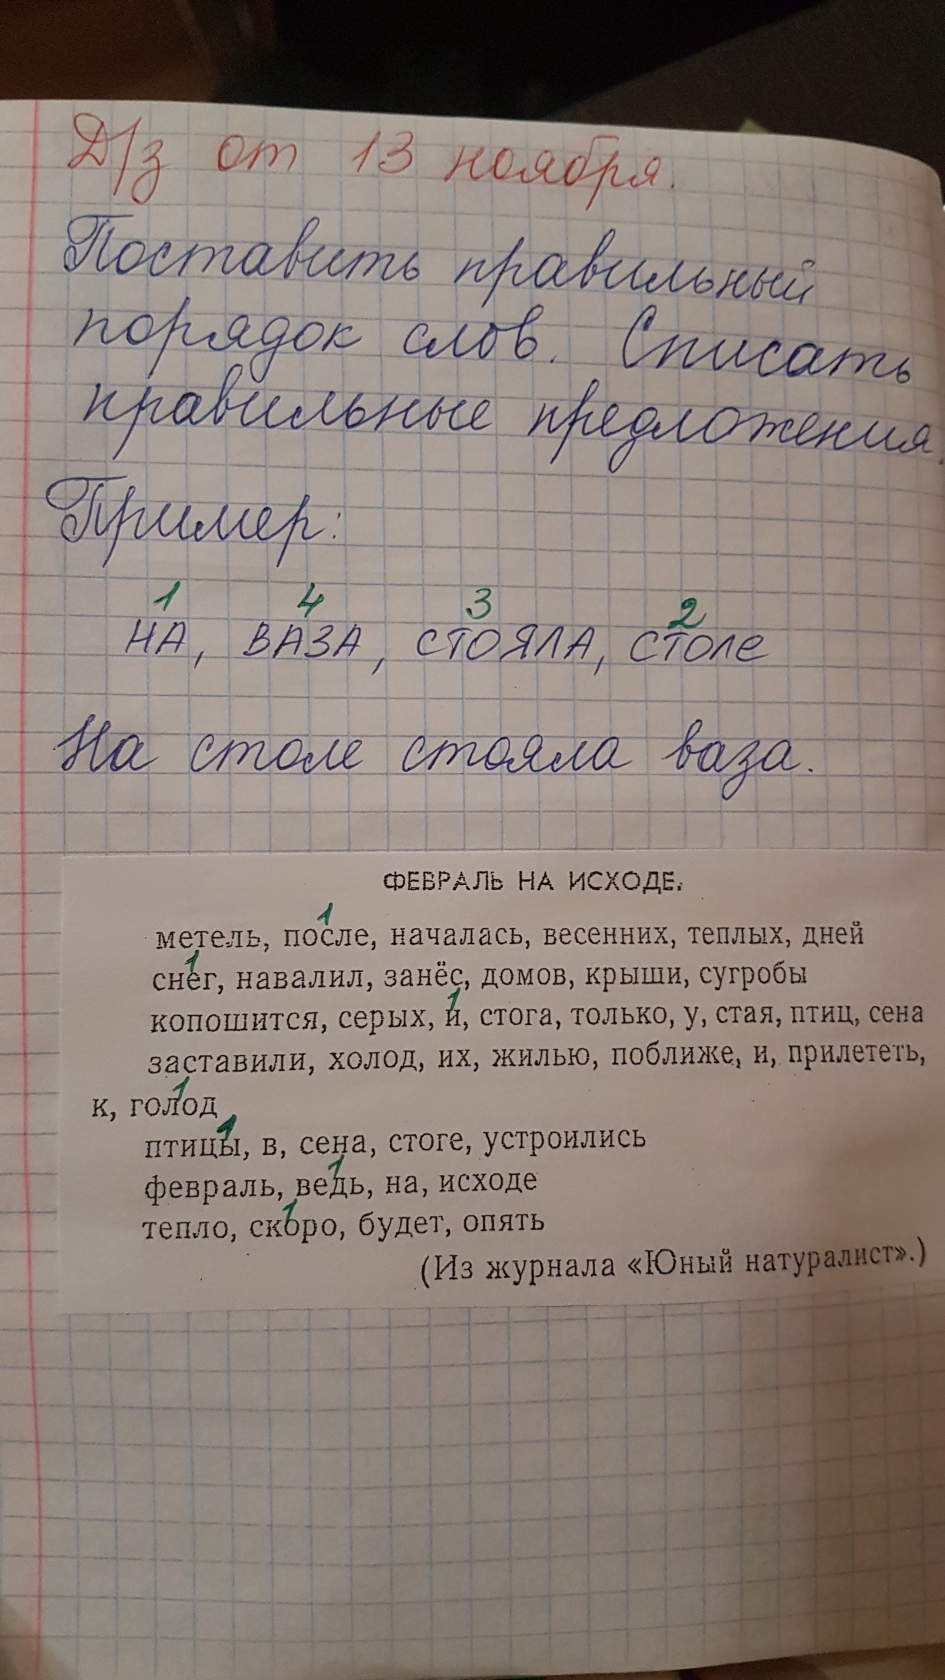 Д/з от 13 ноября.
Поставить правильный
порядок слов. Списать
правильные предложения.
Пример:
1 4 3 2
НА, ВАЗА, СТОЯЛА, СТОЛЕ
На столе стояла ваза.
ФЕВРАЛЬ НА ИСХОДЕ.
1
метель, после, началась, весенних, теплых, дней
1
снег, навалил, занёс, домов, крыши, сугробы
1
копошится, серых, и, стога, только, у, стая, птиц, сена
заставили, холод, их, жилью, поближе, и, прилететь,
1
к, голод
1
птицы, в, сена, стоге, устроились
1
февраль, ведь, на, исходе
1
тепло, скоро, будет, опять
(Из журнала «Юный натуралист».)